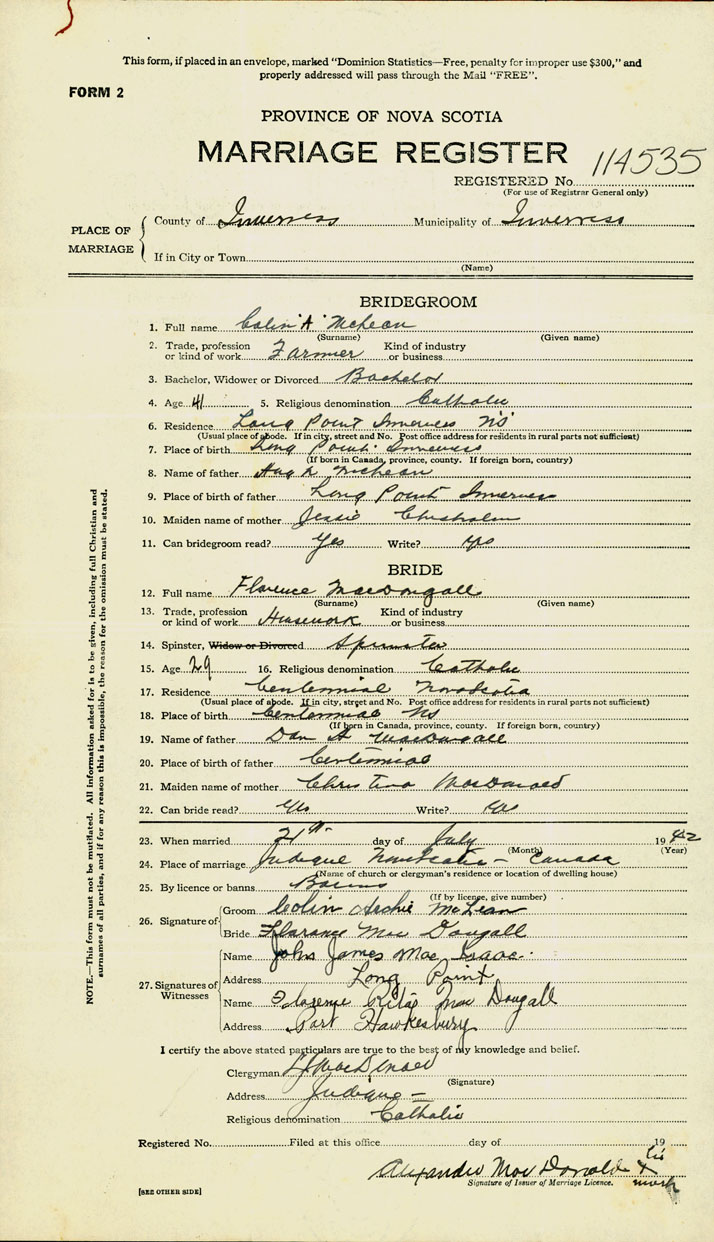 This form, if placed in an envelope, marked "Dominion Statistics—Free, penalty for improper use $300," and
properly addressed will pass through the Mail "FREE".
FORM 2
PROVINCE OF NOVA SCOTIA
MARRIAGE REGISTER
REGISTERED No. 114535
(For use of Registrar General only)
PLACE OF MARRIAGE
County of Inverness Municipality of Inverness
If in City or Town
(Name)
BRIDEGROOM
1. Full name Colin "A" McLean
(Surname) (Given name)
2. Trade, profession or kind of work Farmer Kind of industry or business
3. Bachelor, Widower or Divorced Bachelor
4. Age 41 5. Religious denomination Catholic
6. Residence Long Point Inverness NS
(Usual place of abode. If in city, street and No. Post office address for residents in rural parts not sufficient)
7. Place of birth Long Point Inverness
(If born in Canada, province, county. If foreign born, country)
8. Name of father Hugh McLean
9. Place of birth of father Long Point Inverness
10. Maiden name of mother Jessie Chisholm
11. Can bridegroom read? Yes Write? Yes
BRIDE
12. Full name Florence MacDougall
(Surname) (Given name)
13. Trade, profession or kind of work Housework Kind of industry or business
14. Spinster, Widow or Divorced Spinster
15. Age 29 16. Religious denomination Catholic
17. Residence Centennial Nova Scotia
(Usual place of abode. If in city, street and No. Post office address for residents in rural parts not sufficient)
18. Place of birth Centennial NS
(If born in Canada, province, county. If foreign born, country)
19. Name of father Dan A MacDougall
20. Place of birth of father Centennial
21. Maiden name of mother Christina MacDonald
22. Can bride read? Yes Write? Yes
23. When married 21st day of July 1942
(Month) (Year)
24. Place of marriage Judique Nova Scotia – Canada
(Name of church or clergyman's residence or location of dwelling house)
25. By licence or banns Banns
(If by licence, give number)
26. Signature of
Groom Colin Archie McLean
Bride Florance Mac Dougall
27. Signatures of Witnesses
Name John James Mac Isaac
Address Long Point
Name Florence Rita Mac Dougall
Address Port Hawkesbury
I certify the above stated particulars are true to the best of my knowledge and belief.
Clergyman MacDonald
(Signature)
Address Judique –
Religious denomination Catholic
Registered No. Filed at this office day of 19
Alexander Mac Donald X his mark
Signature of Issuer of Marriage Licence.
[SEE OTHER SIDE]
NOTE.—This form must not be mutilated. All information asked for is to be given, including full Christian and
surnames of all parties, and if for any reason this is impossible, the reason for the omission must be stated.